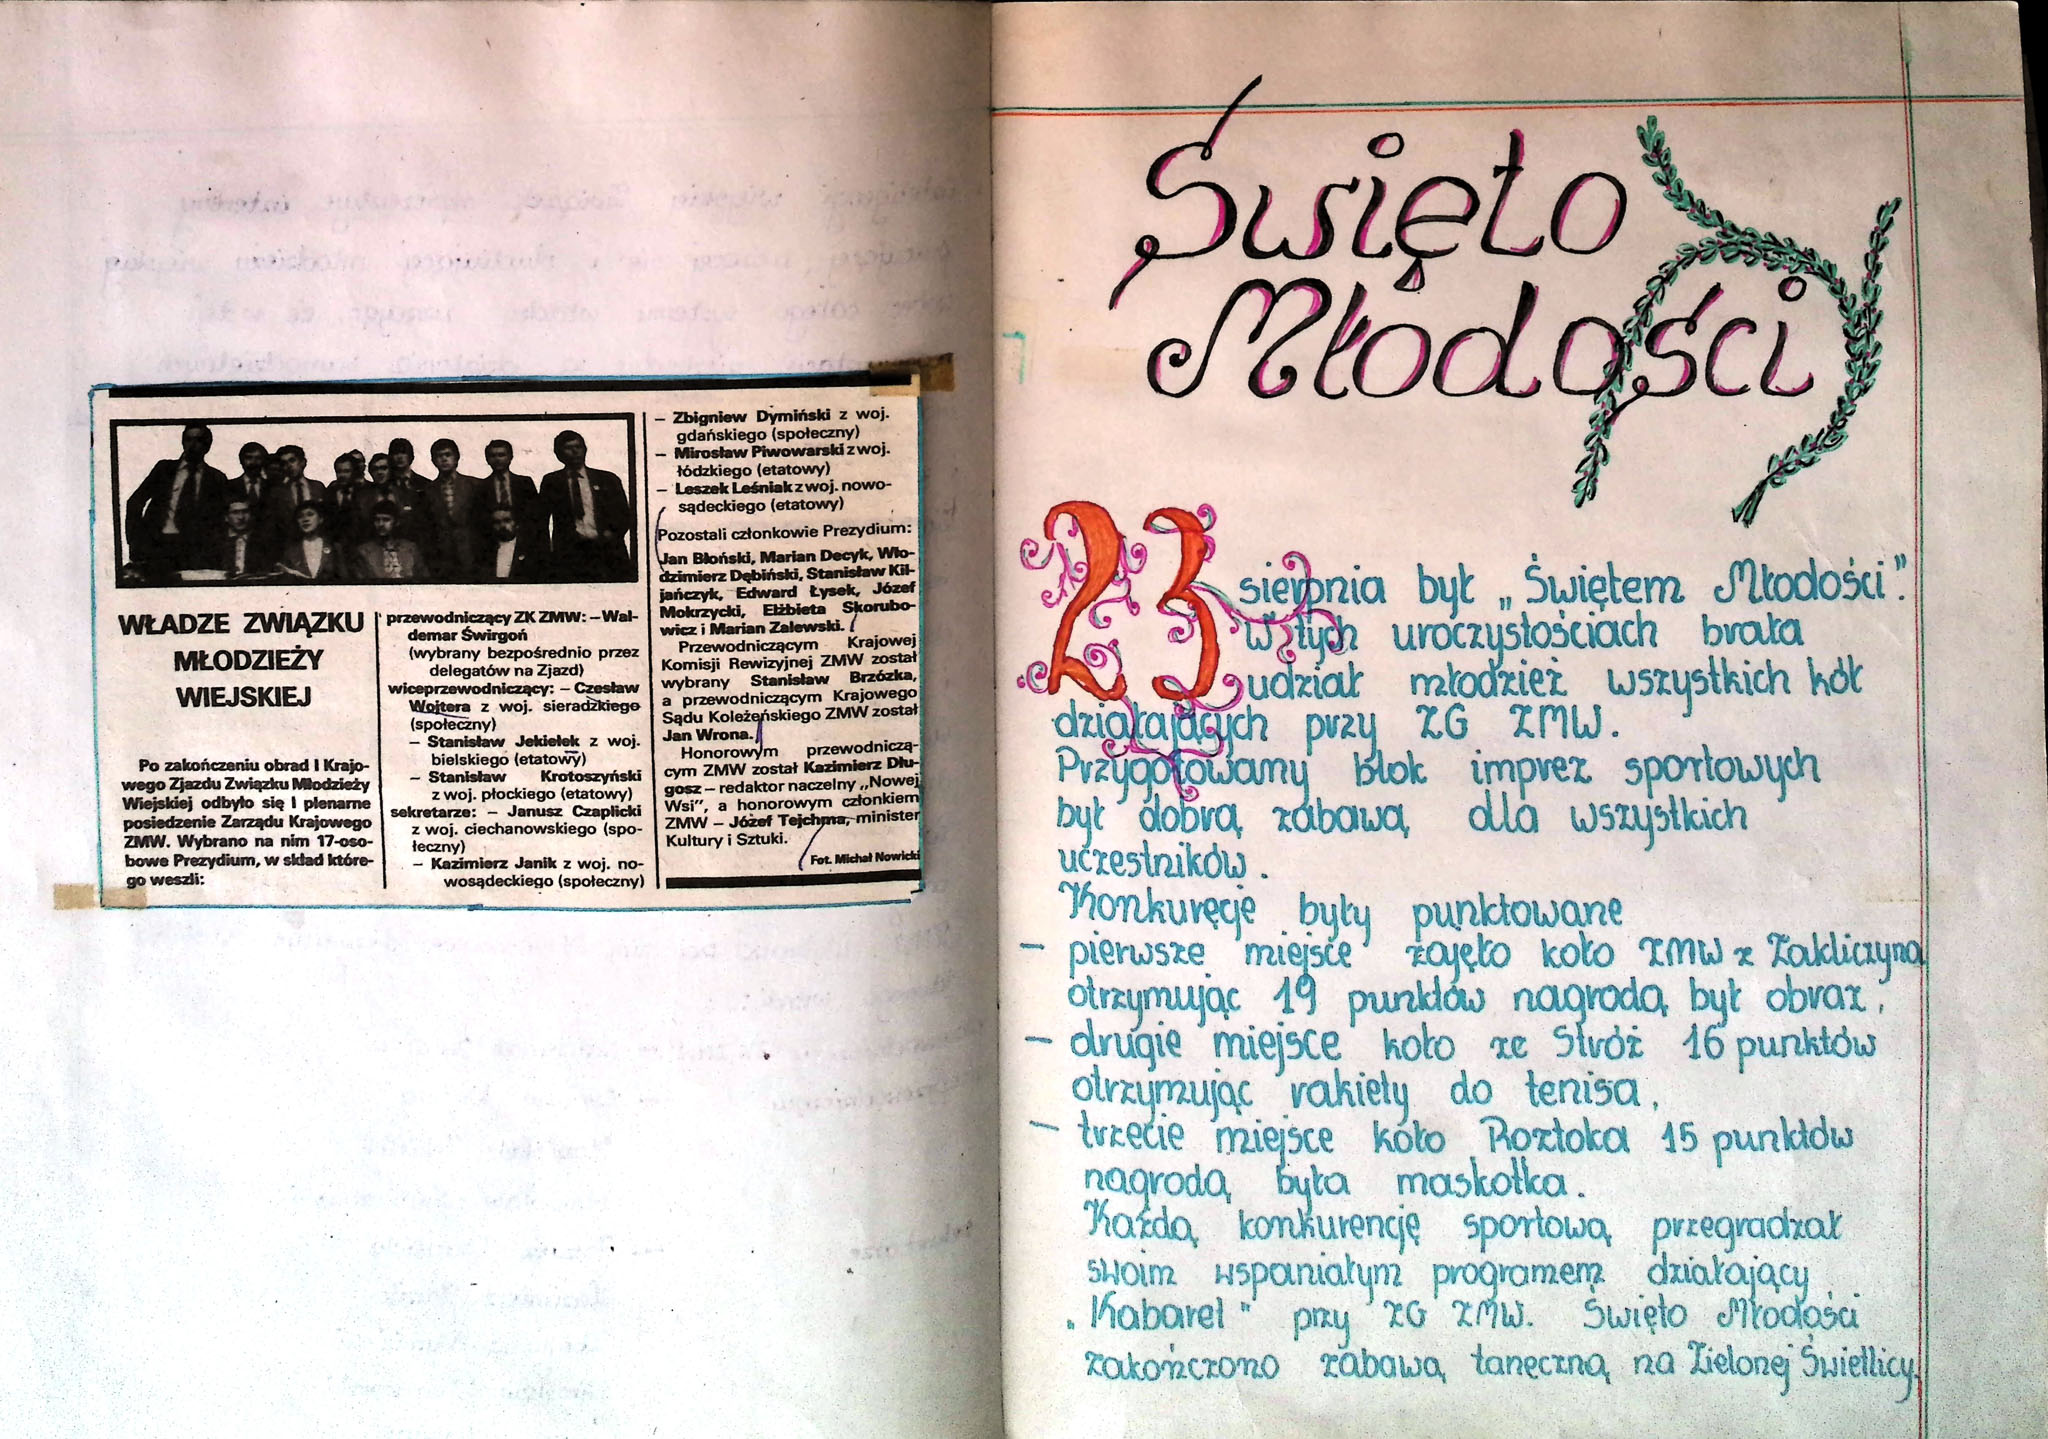 WŁADZE ZWIĄZKU
MŁODZIEŻY
WIEJSKIEJ
Po zakończeniu obrad I Krajo-
wego Zjazdu Związku Młodzieży
Wiejskiej odbyło się I plenarne
posiedzenie Zarządu Krajowego
ZMW. Wybrano na nim 17-oso-
bowe Prezydium, w skład które-
go weszli:
przewodniczący ZK ZMW: – Wal-
demar Świrgoń
(wybrany bezpośrednio przez
delegatów na Zjazd)
wiceprzewodniczący: – Czesław
Wojtera z woj. sieradzkiego
(społeczny)
– Stanisław Jekiełek z woj.
bielskiego (etatowy)
– Stanisław Krotoszyński
z woj. płockiego (etatowy)
sekretarze: – Janusz Czaplicki
z woj. ciechanowskiego (spo-
łeczny)
– Kazimierz Janik z woj. no-
wosądeckiego (społeczny)
– Zbigniew Dymiński z woj.
gdańskiego (społeczny)
– Mirosław Piwowarski z woj.
łódzkiego (etatowy)
– Leszek Leśniak z woj. nowo-
sądeckiego (etatowy)
Pozostali członkowie Prezydium:
Jan Błoński, Marian Decyk, Wło-
dzimierz Dębiński, Stanisław Kil-
jańczyk, Edward Łysek, Józef
Mokrzycki, Elżbieta Skorubo-
wicz i Marian Zalewski.
Przewodniczącym Krajowej
Komisji Rewizyjnej ZMW został
wybrany Stanisław Brzózka,
a przewodniczącym Krajowego
Sądu Koleżeńskiego ZMW został
Jan Wrona.
Honorowym przewodniczą-
cym ZMW został Kazimierz Dłu-
gosz – redaktor naczelny „Nowej
Wsi”, a honorowym członkiem
ZMW – Józef Tejchma, minister
Kultury i Sztuki.
Fot. Michał Nowicki
Święto
Młodości
23 sierpnia był „Świętem Młodości”.
W tych uroczystościach brała
udział młodzież wszystkich kół
działających przy ZG ZMW.
Przygotowany blok imprez sportowych
był dobrą zabawą dla wszystkich
uczestników.
Konkuręcje były punktowane
– pierwsze miejsce zajęło koło ZMW z Zakliczyna
otrzymując 19 punktów nagrodą był obraz,
– drugie miejsce koło ze Stróż 16 punktów
otrzymując rakiety do tenisa,
– trzecie miejsce koło Roztoka 15 punktów
nagrodą była maskotka.
Każdą konkurencję sportową przegradzał
swoim wspaniałym programem działający
„Kabaret” przy ZG ZMW. Święto Młodości
zakończono zabawą taneczną na Zielonej Świetlicy.